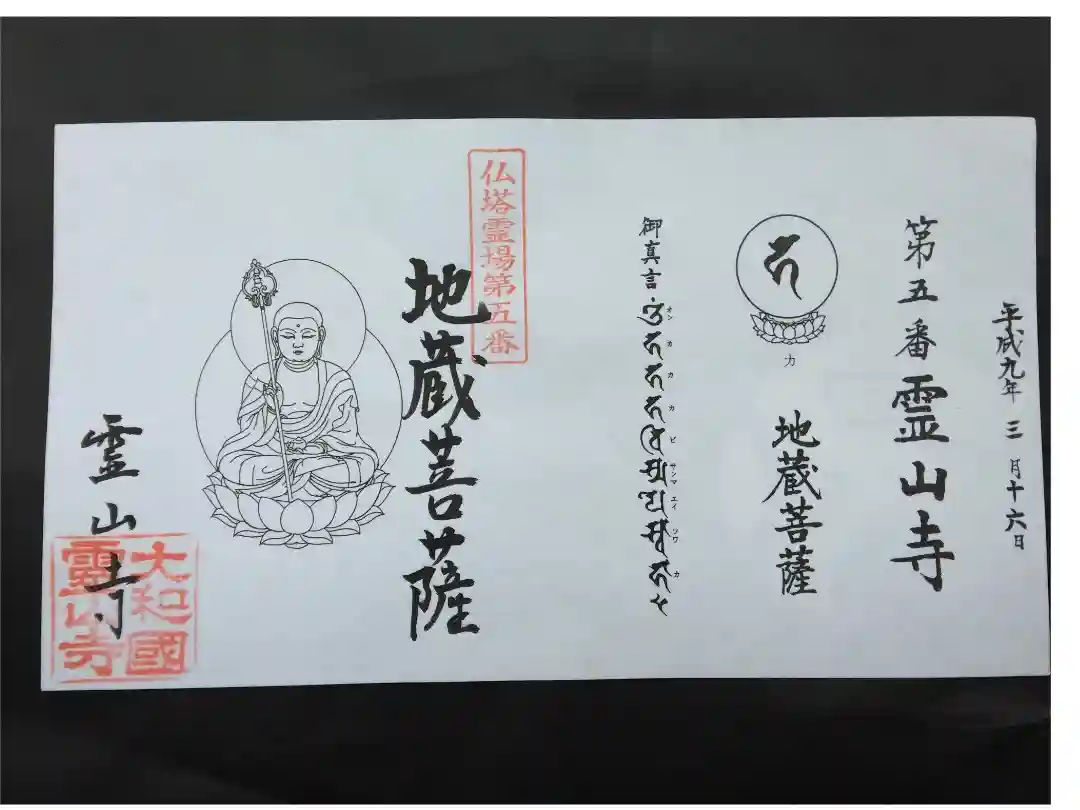 平成九年 三月十六日
第五番 霊山寺
カ
地蔵菩薩
御真言
オン カ カ カ ビ サンマ エイ ソワ カ
仏塔霊場第五番
地蔵菩薩
霊山寺
大和國
靈山寺